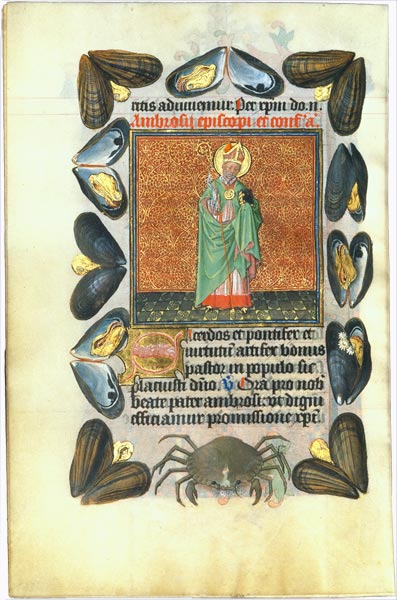 ritis adiuuemur. Per xpm do. n.
Ambrosij episcopi et conf. a.
Sacerdos et pontifex et
uirtutum artifex bonus
pastor in populo sic
placuisti dno. V Ora pro nob
beate pater ambrosi. vt digni
efficiamur promissione xpi